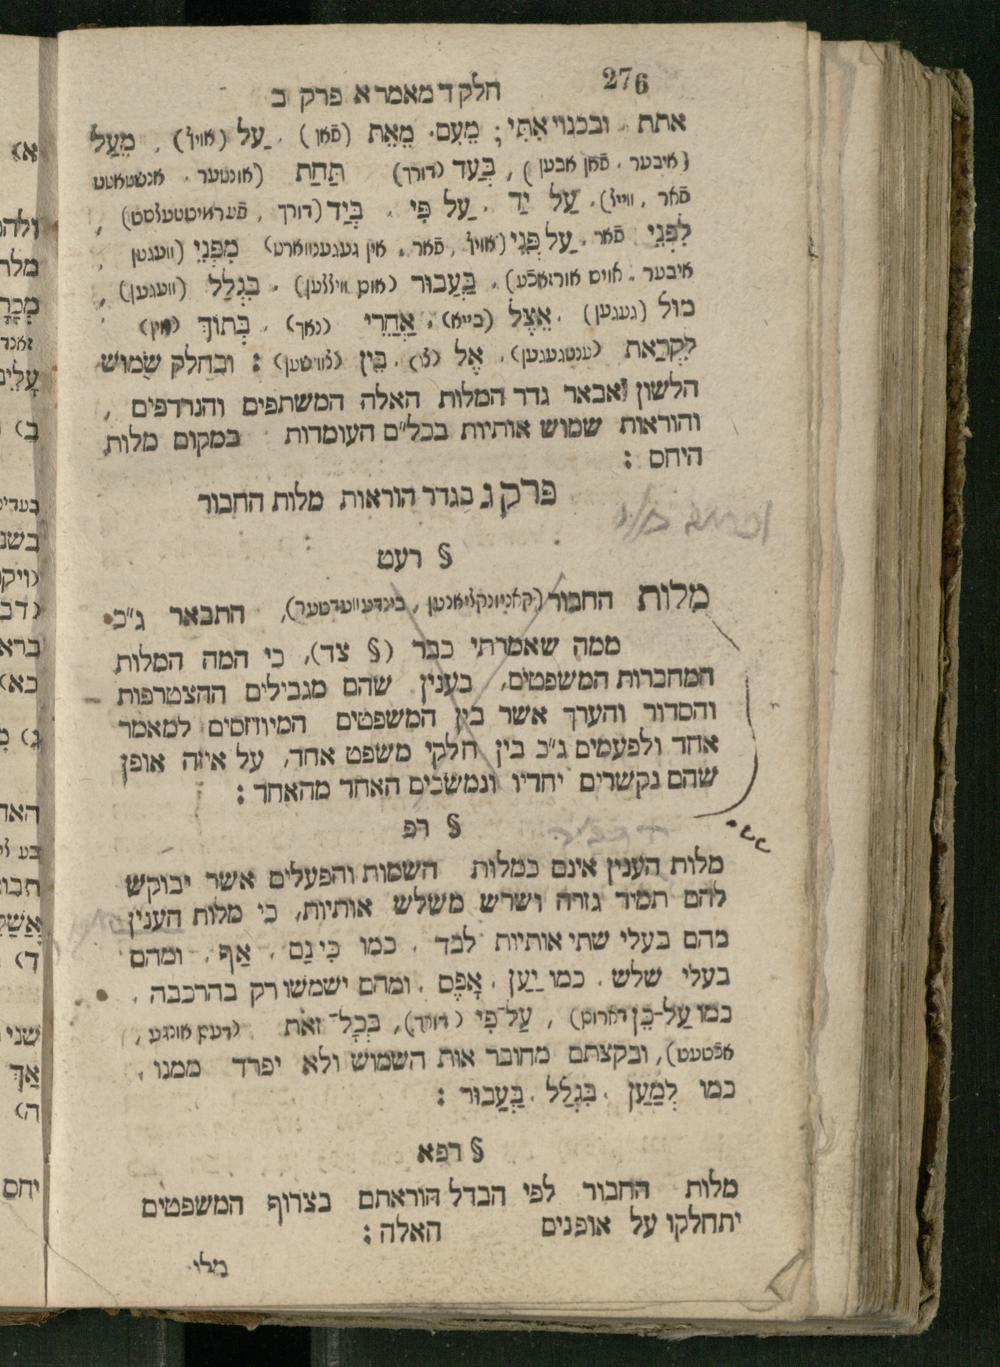 276
חלק ד מאמר א פרק ב
אתת ובכנוי אִתִּי; מֵעִם. מֵאֵת (פֿאן). עַל (אויף), מֵעַל
(איבער. פֿאן אבען), בְּעַד (דורך) תַּחַת (אונטער. אנשטאטט
פֿאר, ווייל). עַל יַד. עַל פִּי. בְּיַד (דורך, פֿערמיטטעלסט),
לִפְנֵי פֿאר. עַל פְּנֵי (אויף, פֿאר. אין געגענווארט) מִפְּנֵי (וועגען,
איבער. אויס אורזאכע). בַּעֲבוּר (אום ווילען). בִּגְלַל (וועגען),
מוּל (געגען). אֵצֶל (בייא). אַחֲרֵי (נאך). בְּתוֹךְ (אין)
לִקְרַאת (ענטגעגען). אֶל (צו). בֵּין (צווישען): ובחלק שמוש
הלשון אבאר גדר המלות האלה המשתפים והנרדפים,
והוראות שמוש אותיות בכל״ם העומדות במקום מלות
היחס:
פרק ג בגדר הוראות מלות החבור
§ רעט
מלות החבור (קאניונקציאנען, בינדעווערטער), התבאר ג״כ
ממה שאמרתי כבר (§ צד), כי המה המלות
המחברות המשפטים, בענין שהם מגבילים ההצטרפות
והסדור והערך אשר בין המשפטים המיוחסים למאמר
אחד ולפעמים ג״כ בין חלקי משפט אחד, על איזה אופן
שהם נקשרים יחדיו ונמשכים האחד מהאחד:
§ רפ
מלות הענין אינם כמלות השמות והפעלים אשר יבוקש
להם תמיד גזרה ושרש משלש אותיות, כי מלות הענין
מהם בעלי שתי אותיות לבד. כמו כִּי גַם. אַף. ומהם
בעלי שלש. כמו יַעַן. אֶפֶס. ומהם ישמשו רק בהרכבה.
כמו עַל־כֵּן (דארום), עַל־פִּי (דורך), בְּכָל־זֹאת
אכטעט), ובקצתם מחובר אות השמוש ולא יפרד ממנו.
כמו לְמַעַן. בִּגְלַל. בַּעֲבוּר:
§ רפא
מלות החבור לפי הבדל הוראתם בצרוף המשפטים
יתחלקו על אופנים האלה:
מלו׳